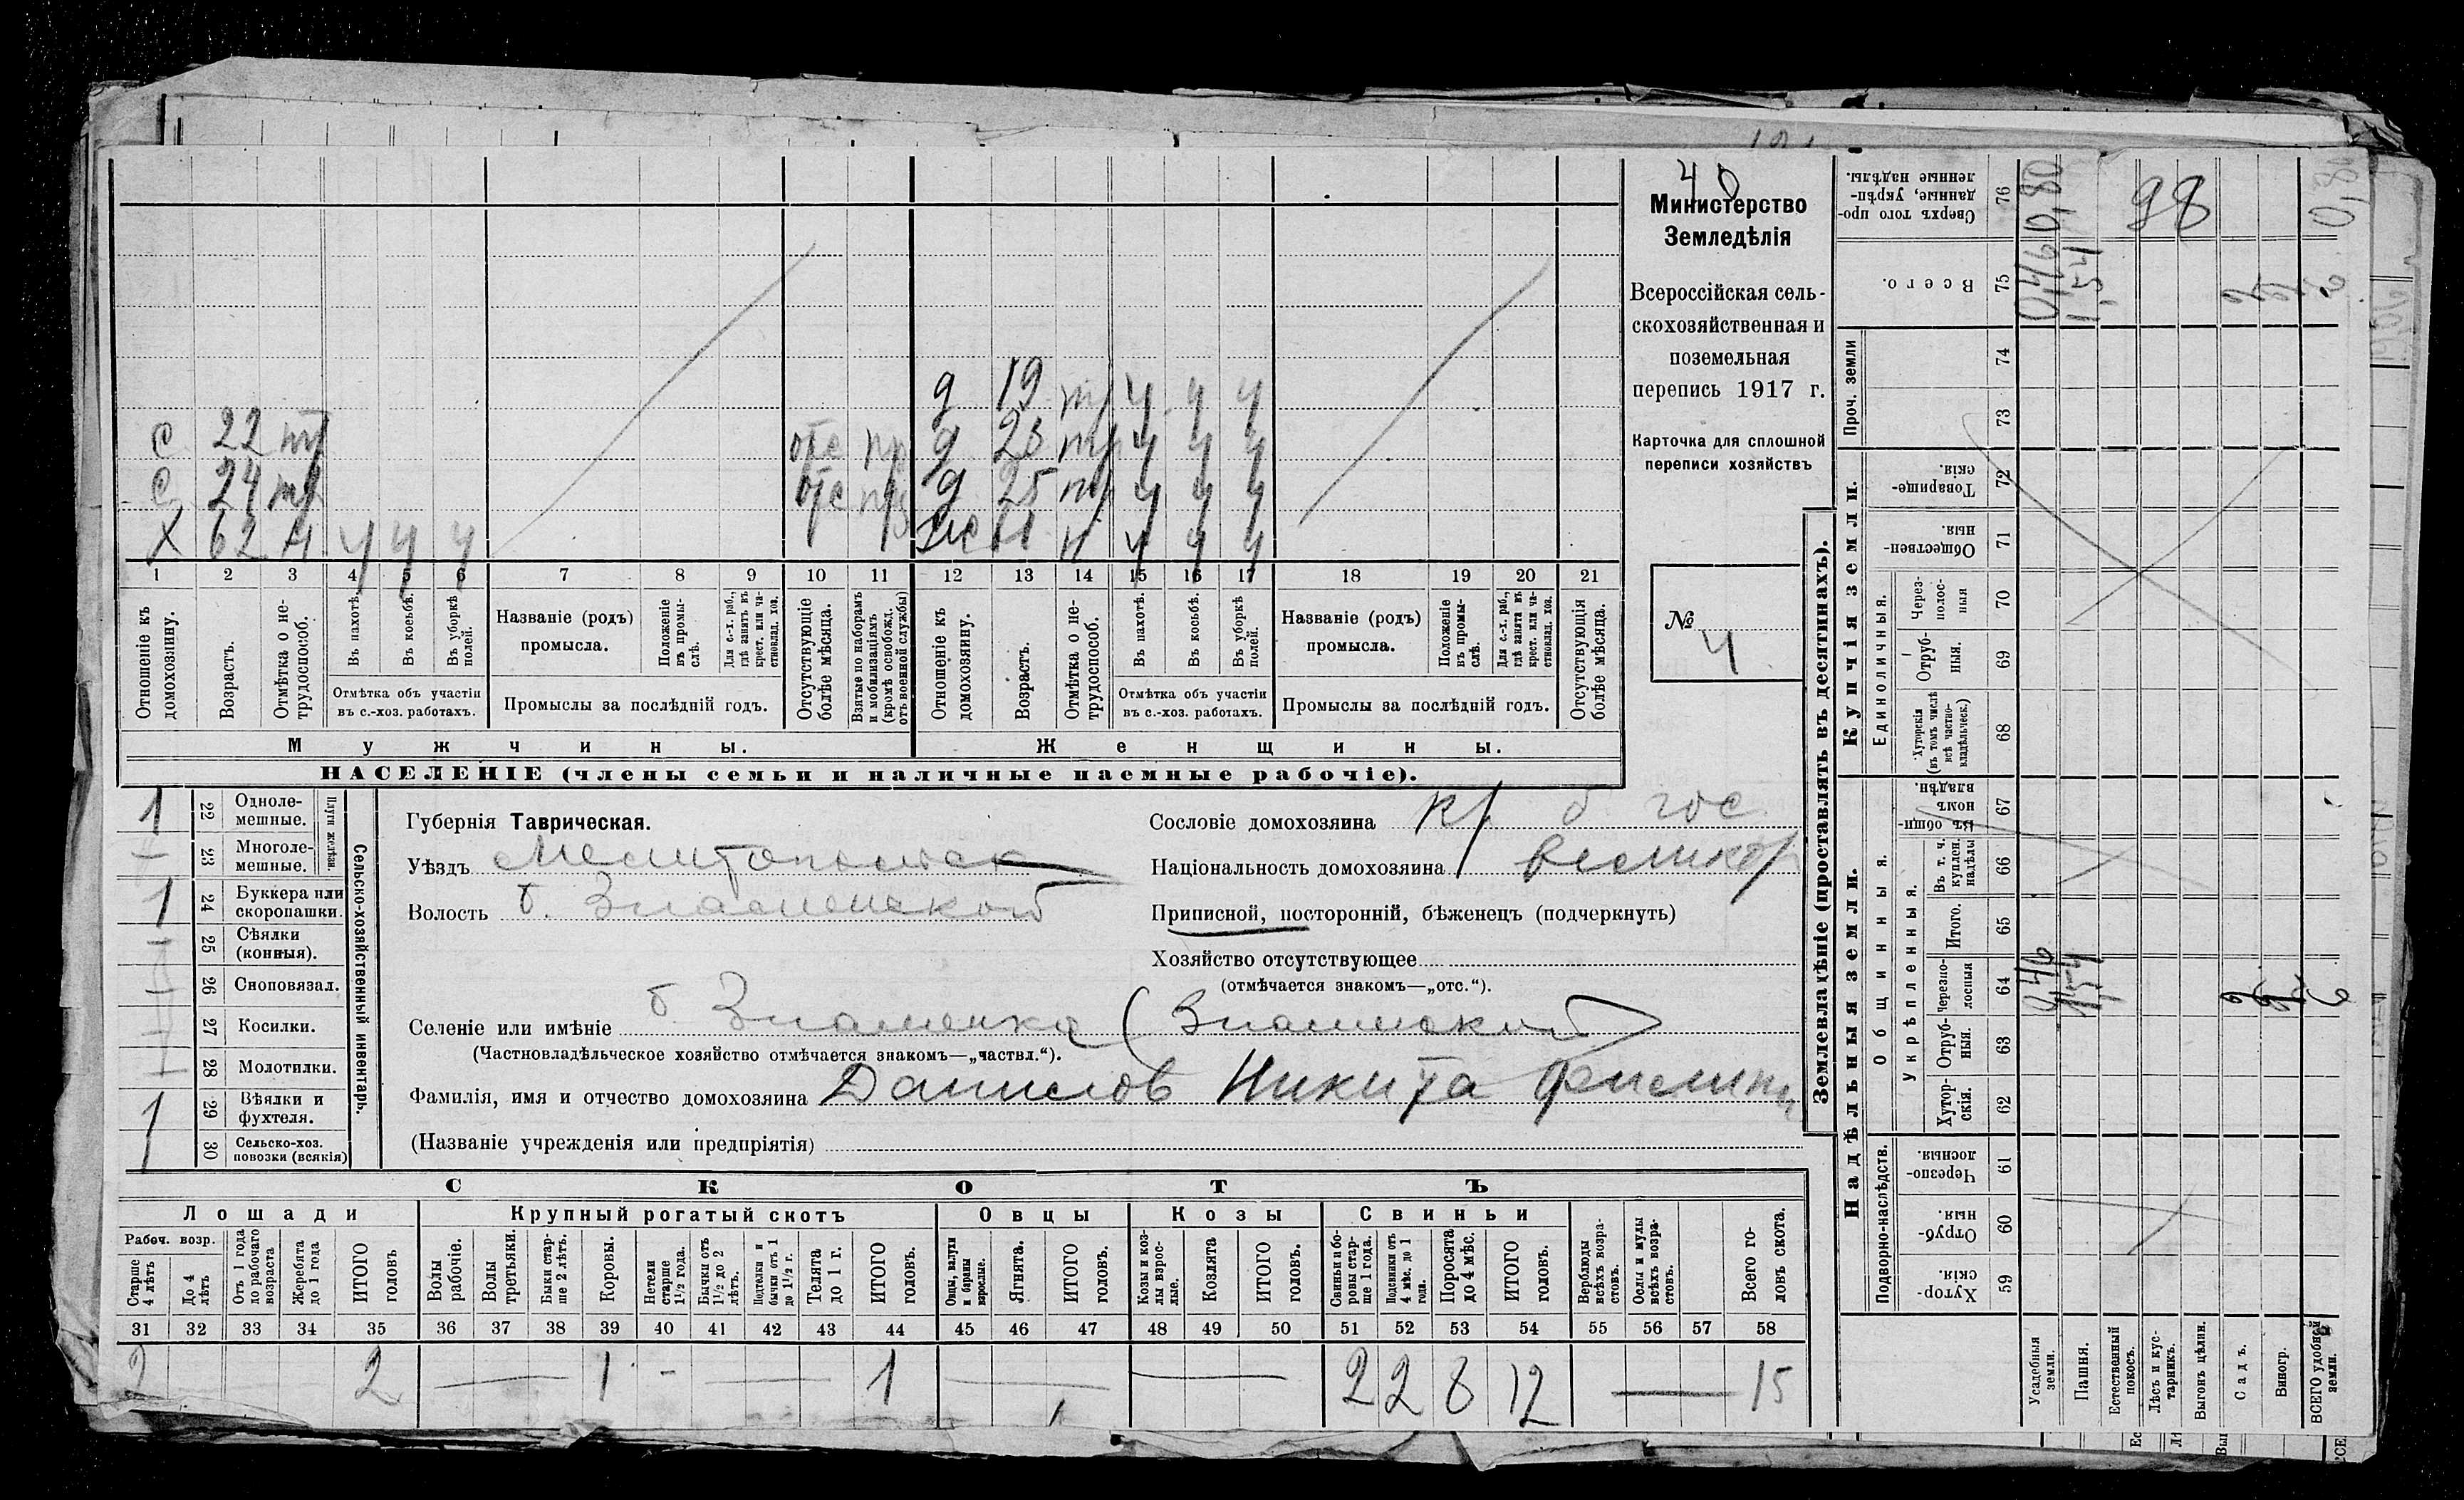 40
Министерство
Земледѣлія
Всероссійская сель-
скохозяйственная и
поземельная
перепись 1917 г.
Карточка для сплошной
переписи хозяйствъ
№
4
д 19 тр ч ч ч
с 22 тр отс пр д 23 тр ч ч ч
с 24 тр отс пр д 25 тр ч ч ч
Х 62 н ч ч ч ж 61 н ч ч ч
1 2 3 4 5 6 7 8 9 10 11 12 13 14 15 16 17 18 19 20 21
Отношеніе къ домохозяину.
Возрастъ.
Отмѣтка о не-трудоспособ.
Въ пахотѣ.
Въ косьбѣ.
Въ уборкѣ полей.
Отмѣтка объ участіи въ с.-хоз. работахъ.
Названіе (родъ) промысла.
Положеніе въ промы-слѣ.
Для с.-х. раб., гдѣ занятъ въ крест. или ча-стновлад. хоз.
Промыслы за послѣдній годъ.
Отсутствующіе болѣе мѣсяца.
Взятые по наборамъ и мобилизаціямъ (кромѣ освобожд. отъ военной службы)
Отношеніе къ домохозяину.
Возрастъ.
Отмѣтка о не-трудоспособ.
Въ пахотѣ.
Въ косьбѣ.
Въ уборкѣ полей.
Отмѣтка объ участіи въ с.-хоз. работахъ.
Названіе (родъ) промысла.
Положеніе въ промы-слѣ.
Для с.-х. раб., гдѣ занята въ крест. или ча-стновлад. хоз.
Промыслы за послѣдній годъ.
Отсутствующія болѣе мѣсяца.
Мужчины. Женщины.
НАСЕЛЕНІЕ (члены семьи и наличные наемные рабочіе).
Сельско-хозяйственный инвентарь.
Плуги желѣзн.
1 22 Одноле-мешные.
— 23 Многоле-мешные.
1 24 Буккера или скоропашки.
— 25 Сѣялки (конныя).
— 26 Сноповязал.
— 27 Косилки.
— 28 Молотилки.
1 29 Вѣялки и фухтеля.
1 30 Сельско-хоз. повозки (всякія)
Губернія Таврическая.
Уѣздъ Мелитопольск
Волость б. Знаменской
Селеніе или имѣніе б Знаменка (Знаменской)
(Частновладѣльческое хозяйство отмѣчается знакомъ—„частвл.“).
Фамилія, имя и отчество домохозяина Данилов Никита
(Названіе учрежденія или предпріятія)
Сословіе домохозяина кр. б. гос
Національность домохозяина великор
Приписной, посторонній, бѣженецъ (подчеркнуть)
Хозяйство отсутствующее
(отмѣчается знакомъ—„отс.“).
СКОТЪ
Лошади Крупный рогатый скотъ Овцы Козы Свиньи
Рабоч. возр.
Старше 4 лѣтъ
До 4 лѣтъ
Отъ 1 года до рабочаго возраста
Жеребята до 1 года
ИТОГО головъ
Волы рабочіе.
Волы третьяки.
Быки стар-ше 2 лѣтъ.
Коровы.
Нетели старше 1½ года.
Бычки отъ 1½ до 2 лѣтъ.
Подтелки и бычки отъ 1 до 1½ г.
Телята до 1 г.
ИТОГО головъ.
Овцы, валухи и бараны взрослые.
Ягнята.
ИТОГО головъ.
Козы и коз-лы взрос-лые.
Козлята
ИТОГО головъ.
Свиньи и бо-ровы стар-ше 1 года.
Подсвинки отъ 4 мѣс. до 1 года.
Поросята до 4 мѣс.
ИТОГО головъ.
Верблюды всѣхъ возра-стовъ.
Ослы и мулы всѣхъ возра-стовъ.
Всего го-ловъ скота.
31 32 33 34 35 36 37 38 39 40 41 42 43 44 45 46 47 48 49 50 51 52 53 54 55 56 57 58
2 2 — 1 - — 1 — — 2 2 8 12 — 15
Землевладѣніе (проставлять въ десятинахъ).
Надѣльныя земли. Купчія земли.
Подворно-наслѣдств.
Общинныя.
Укрѣпленныя.
Единоличныя.
Проч. земли
Хутор-скія. 59
Отруб-ныя. 60
Черезпо-лосныя. 61
Хутор-скія. 62
Отруб-ныя. 63
Черезпо-лосныя 64
Итого. 65
Въ т. ч. куплен. надѣлы 66
Въ общи-номъ владѣн. 67
Хуторскія (въ томъ числѣ всѣ частно-владѣльческ.) 68
Отруб-ныя. 69
Через-полос-ныя 70
Обществен-ныя. 71
Товарище-скія. 72
73
74
Всего. 75
Сверхъ того про-данные, укрѣп-ленные надѣлы. 76
Усадебныя земли.
Пашня.
Естественный покосъ.
Лѣсъ и кус-тарникъ.
Выгонъ цѣлин.
Садъ.
Виногр.
ВСЕГО удобной земли.
0,46 0,80
1,54
98
0,46
1,54
2
0,8